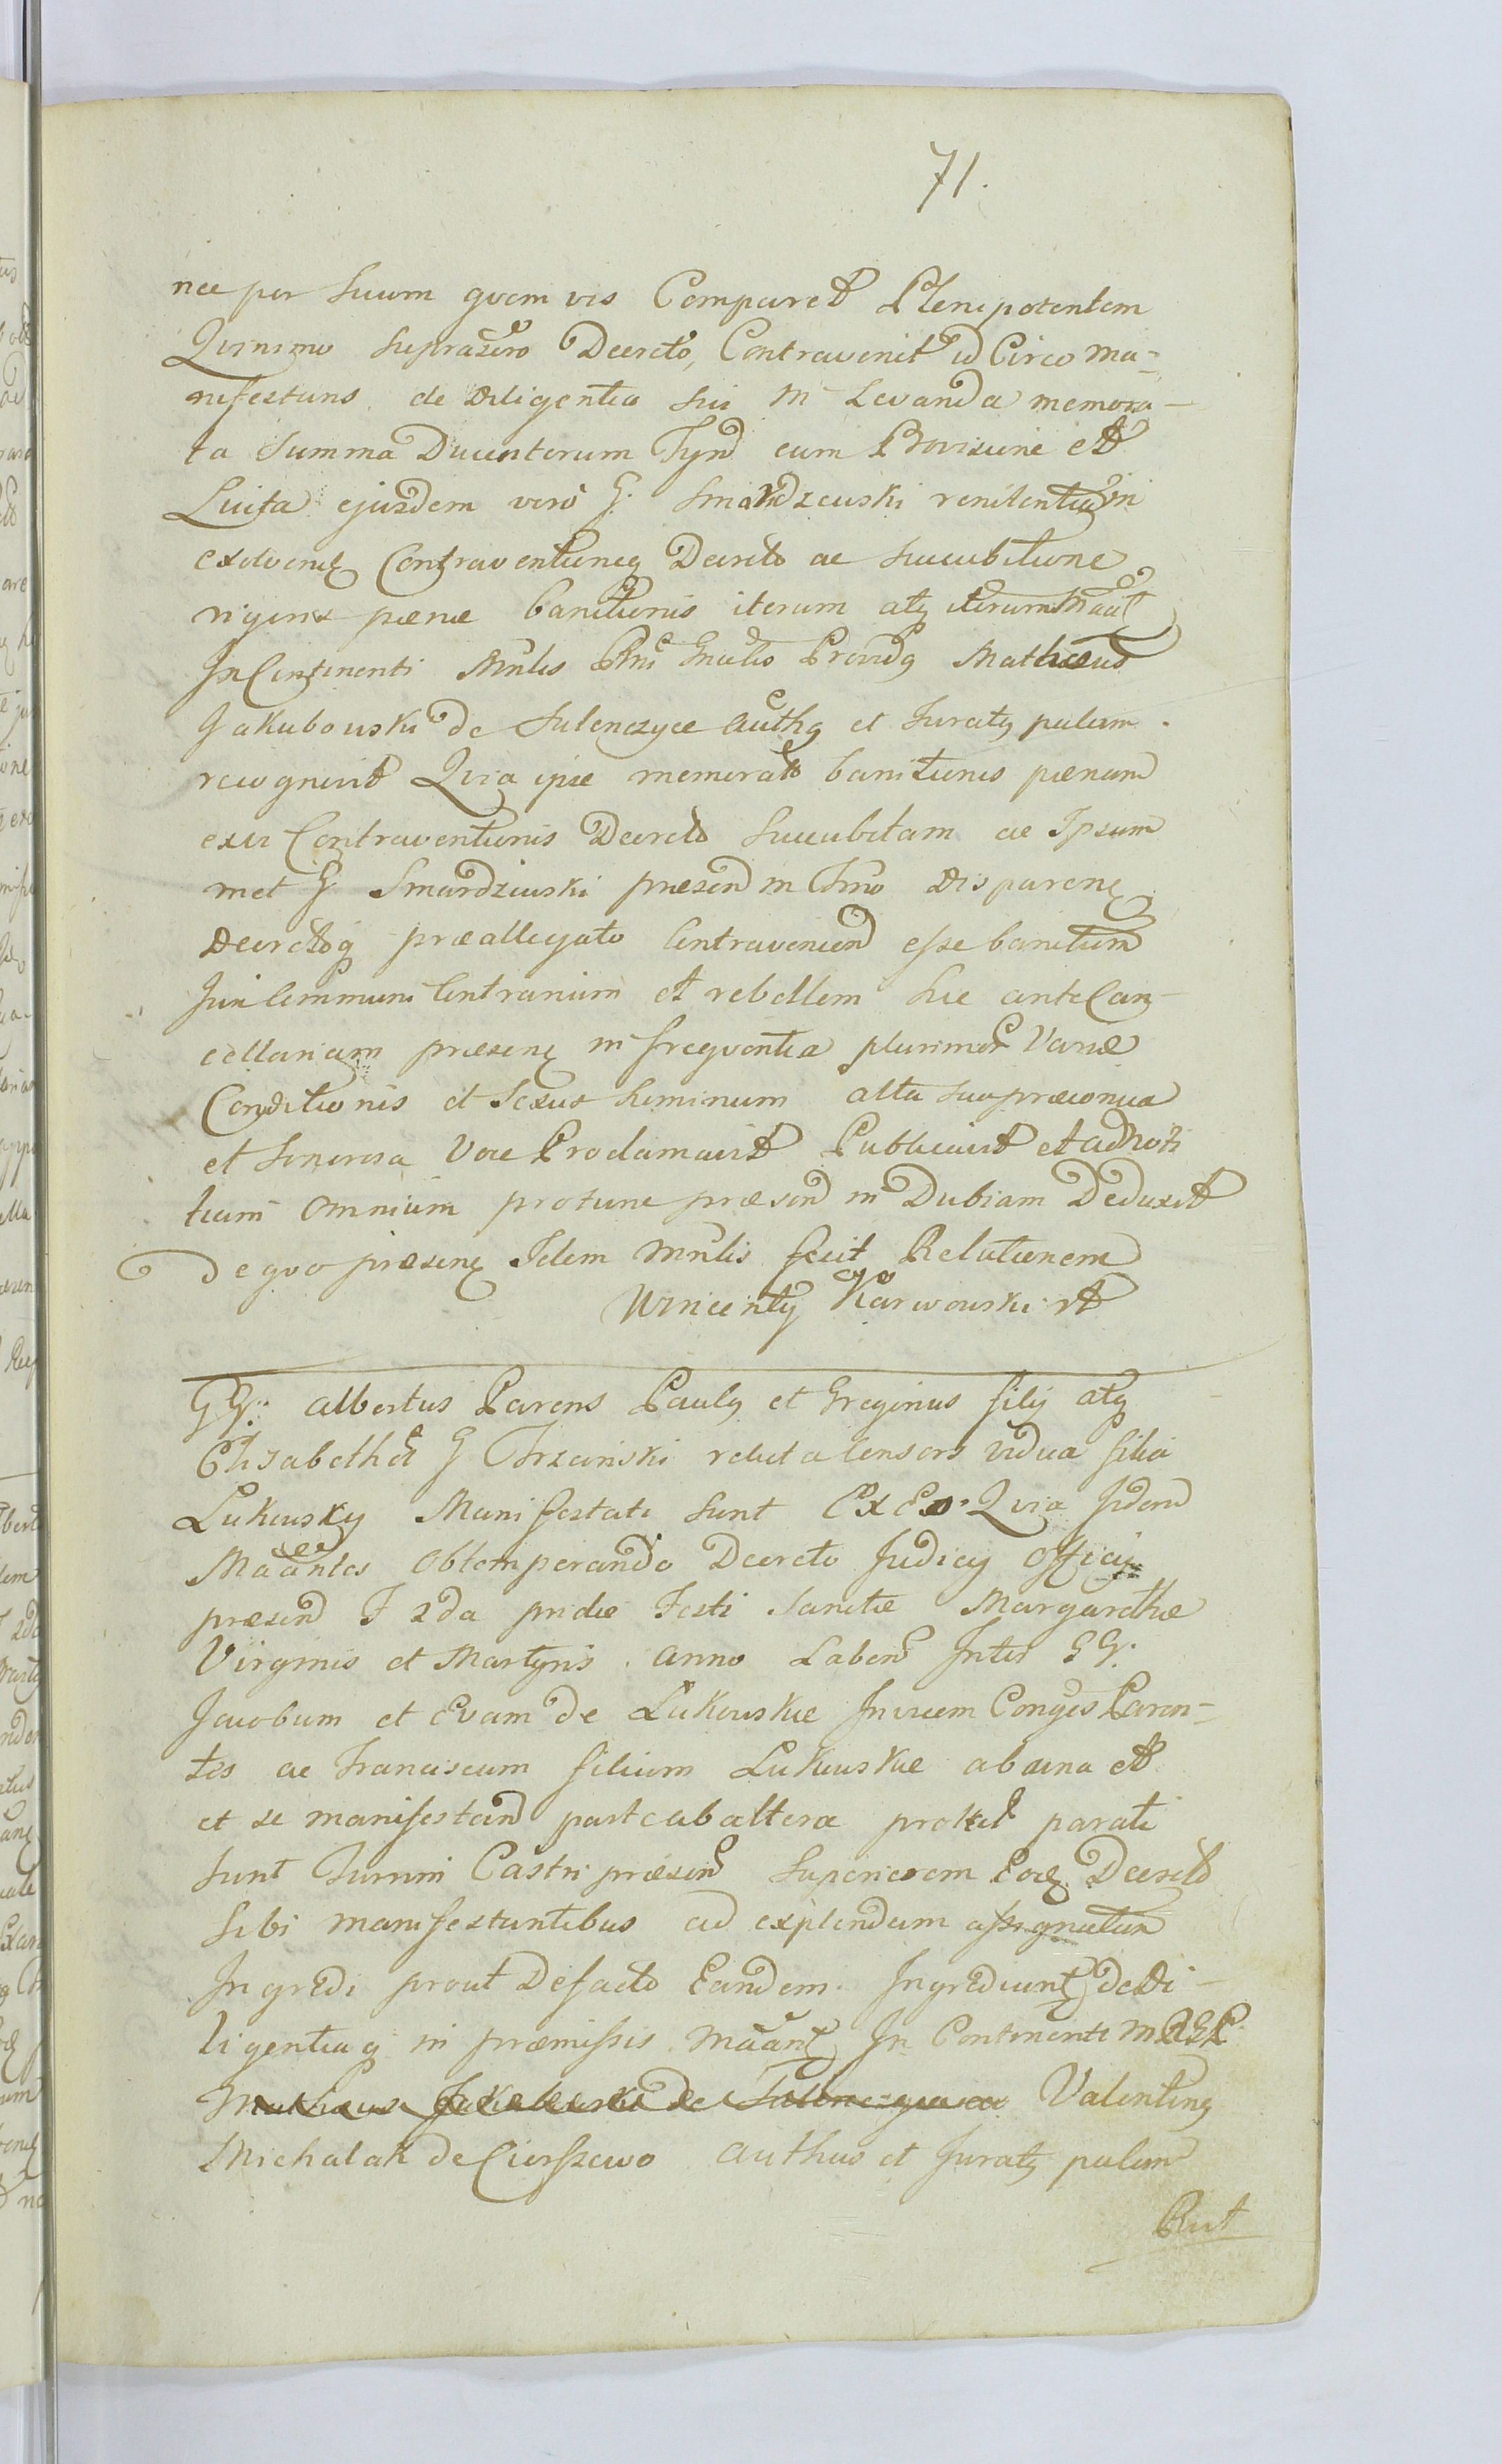 71.
nec per suum quem vis Comparet Plenipotentem
Qvinimo supra Decreto, Contravenit id Circo ma-
nifestans de Diligentia sui in Levanda memora-
ta Summa Ducentorum Tyn cum Provisione et
Luita ejusdem vero G. Smardzewski renitentia in
exolvenꝫ Contraventioneq Decreto ac succubitione
rigens pænæ banitionis iterum atq iterum
In Continenti Mnlis Gnalis Providq Mathæus
Jakubowski de Sulenczyce authq et Juratq palam
recognivit Qvia ipse memorat banitionis pænam
ex vi Contraventionis Decreto succubitam ac Ipsum
met G Smardziewski præsen in Trno Disparenꝫ
Decretoq præallegato Contravenien esse banitum
Juri Communi Contrarium et rebellem hic ante Can-
cellariam præsenꝫ in freqventia plurimor Variæ
Conditionis et Sexus hominum alta sua præconica
et Sonorosa Voce Proclamavit Publicavit et ad noti
tiam omnium protunc præsen in Dubiam Deduxit
De qvo præsenꝫ Idem Mnlis fecit Relationem
Wincenty Karwowski
GG. Albertus Parens Paulq et Greginus filij atq
Elisabetha G Trzcinski relicta Consors vidua filia
Lukowscy Manifestati sunt Ex Eo. Qvia Jidem
Maantes Obtemperando Decreto Judicij Officij
præsen F 2da pridie Festi Sanctæ Margarethæ
Virginis et Martyris anno Laben Inter GG.
Jacobum et Evam de Lukowskie Invicem Conges Paren-
tes ac Franciscum filium Lukowskie ab una et
et se manifestan parte ab altera prolat parati
sunt Turrim Castri præsen Superiorem Eoꝫ Decreto
Sibi manifestantibus ad explendum assignatam
Ingredi prout Defacto Eandem Ingrediuntꝫ de Di-
ligentiaq in præmissis maanꝫ In Continenti
Mathæus Jakubowski de Sulenczyce Valentinq
Michalak de Cierszewo authus et Juratq palam